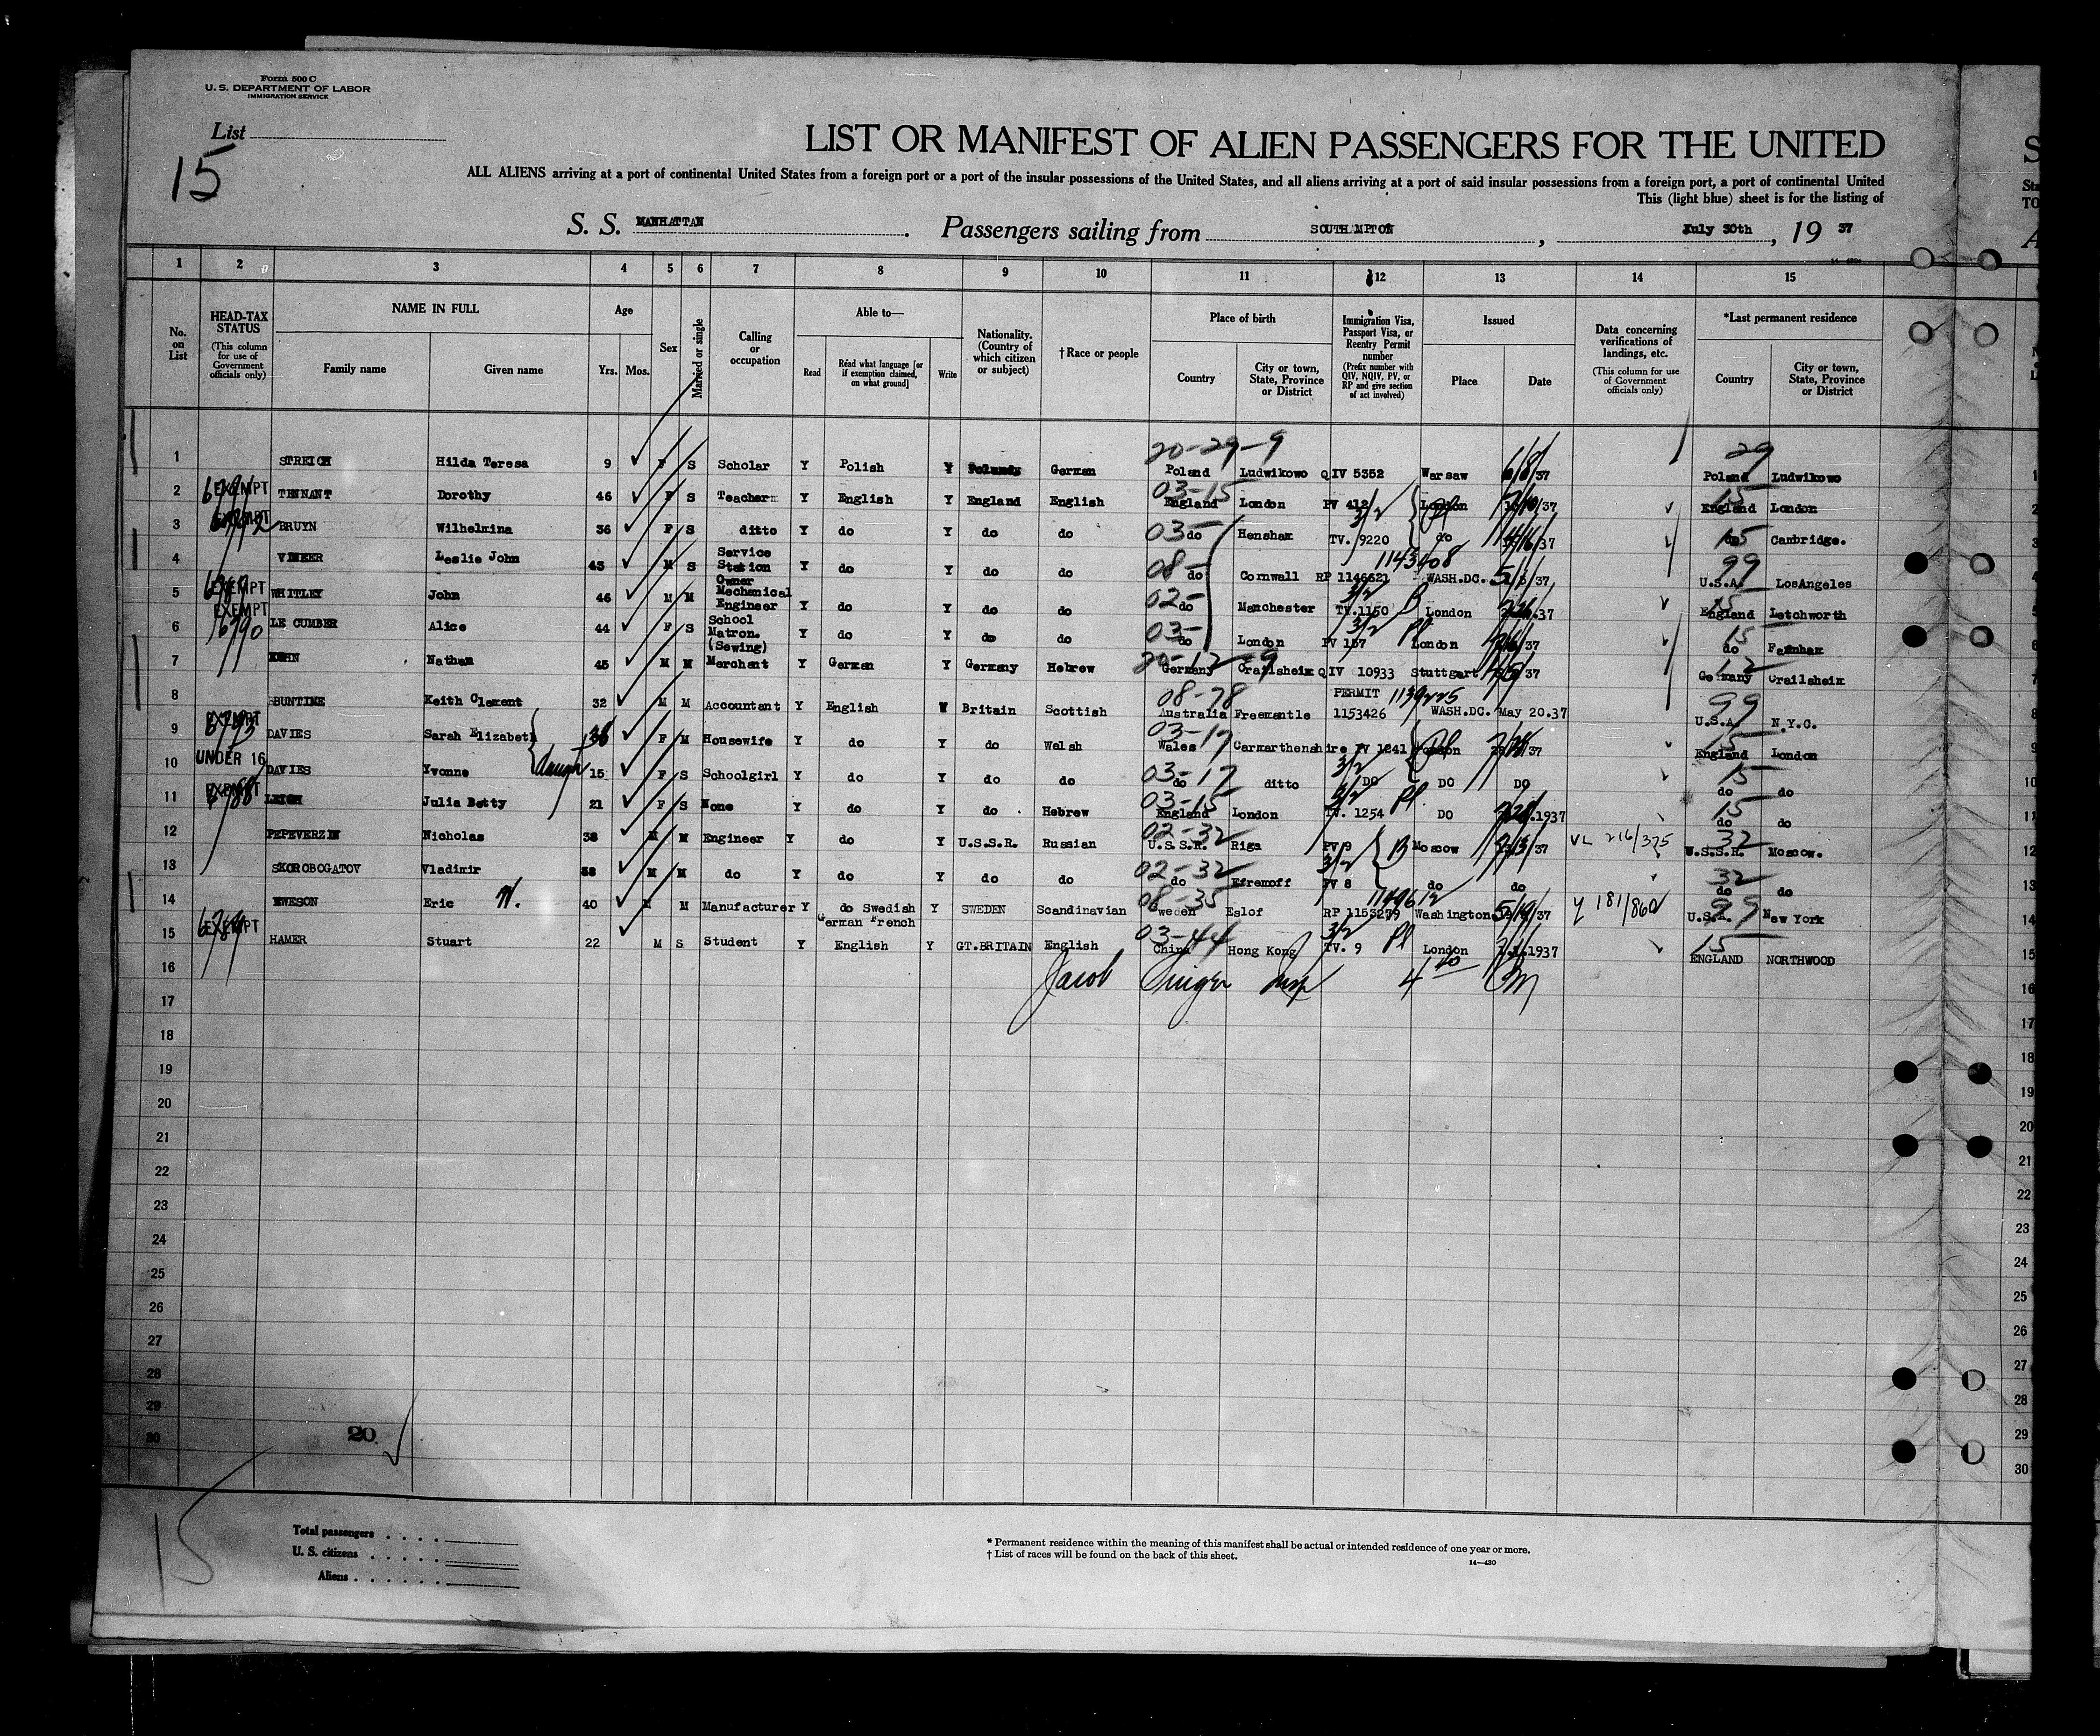 Form 500 C
U. S. DEPARTMENT OF LABOR
IMMIGRATION SERVICE
List
15
LIST OR MANIFEST OF ALIEN PASSENGERS FOR THE UNITED
ALL ALIENS arriving at a port of continental United States from a foreign port or a port of the insular possessions of the United States, and all aliens arriving at a port of said insular possessions from a foreign port, a port of continental United
This (light blue) sheet is for the listing of
S. S. MANHATTAN. Passengers sailing from SOUTHAMPTON, July 30th, 19 37
1 2 3 4 5 6 7 8 9 10 11 12 13 14 15
No. on List
HEAD-TAX STATUS (This column for use of Government officials only)
NAME IN FULL
Family name Given name
Age
Yrs. Mos.
Sex
Married or single
Calling or occupation
Able to—
Read Read what language [or if exemption claimed, on what ground] Write
Nationality. (Country of which citizen or subject)
†Race or people
Place of birth
Country City or town, State, Province or District
Immigration Visa, Passport Visa, or Reentry Permit number (Prefix number with QIV, NQIV, PV, or RP and give section of act involved)
Issued
Place Date
Data concerning verifications of landings, etc. (This column for use of Government officials only)
*Last permanent residence
Country City or town, State, Province or District
20-29-9 29
1 STREICH Hilda Teresa 9 F S Scholar Y Polish Y German Poland Ludwikowo QIV 5352 Warsaw 6/8/37 Poland Ludwikowo 1
2 EXEMPT TENNANT Dorothy 46 F S Teacher Y English Y England English 03-15 England London PV 412 3/2 London /37 15 England London 2
3 EXEMPT BRUYN Wilhelmina 36 F S ditto Y do Y do do 03 do Hensham TV. 9220 do /37 15 do Cambridge. 3
4 VINEER Leslie John 43 M S Service Station Owner Y do Y do do 08 do Cornwall RP 1146621 1143408 WASH.DC. /37 99 U.S.A. LosAngeles 4
5 EXEMPT WHITLEY John 46 M M Mechanical Engineer Y do Y do do 02 do Manchester 3/2 TV.1150 B London .37 15 England Letchworth 5
6 EXEMPT LE CUMBER Alice 44 F S School Matron. (Sewing) Y do Y do do 03 do London 3/2 PV 157 Pl London /37 15 do Farnham 6
7 Nathan 45 M M Merchant Y German Y Germany Hebrew 20-12-9 Germany Crailsheim QIV 10933 Stuttgart /37 12 Germany Crailsheim 7
8 BUNTINE Keith Clement 32 M M Accountant Y English Britain Scottish 08-78 Australia Freemantle PERMIT 1153426 1139225 WASH.DC. May 20.37 99 U.S.A. N.Y.C. 8
9 EXEMPT DAVIES Sarah Elizabeth F M Housewife Y do Y do Welsh 03-17 Wales Carmarthenshire PV 1241 London /37 15 England London 9
10 UNDER 16 DAVIES Yvonne daugh 15 F S Schoolgirl Y do Y do do 03-17 do ditto 3/2 DO DO DO 15 do do 10
11 EXEMPT LEIGH Julia Betty 21 F S None Y do Y do Hebrew 03-15 England London 3/2 TV. 1254 Pl DO .1937 15 do do 11
12 PEPEVERZIN Nicholas 38 M M Engineer Y do Y U.S.S.R. Russian 02-32 U.S.S.R. Riga PV 9 B Moscow /37 VL 216/375 32 U.S.S.R. Moscow. 12
13 SKOROBOGATOV Vladimir 38 M M do Y do Y do do 02-32 do Efremoff 3/2 PV 8 do do 32 do do 13
14 EWESON Eric W. 40 M M Manufacturer Y do Swedish German French Y SWEDEN Scandinavian 08-35 Sweden Eslof RP 1153279 1149612 Washington 5/19/37 Y 181/860 99 U.S.A. New York 14
15 EXEMPT HAMER Stuart 22 M S Student Y English Y GT.BRITAIN English 03-44 China Hong Kong 3/2 TV. 9 Pl London .1937 15 ENGLAND NORTHWOOD 15
16 Jacob Singer Insp 16
17 17
18 18
19 19
20 20
21 21
22 22
23 23
24 24
25 25
26 26
27 27
28 28
29 29
30 30
20
15
Total passengers
U. S. citizens
Aliens
* Permanent residence within the meaning of this manifest shall be actual or intended residence of one year or more.
† List of races will be found on the back of this sheet.
14—430